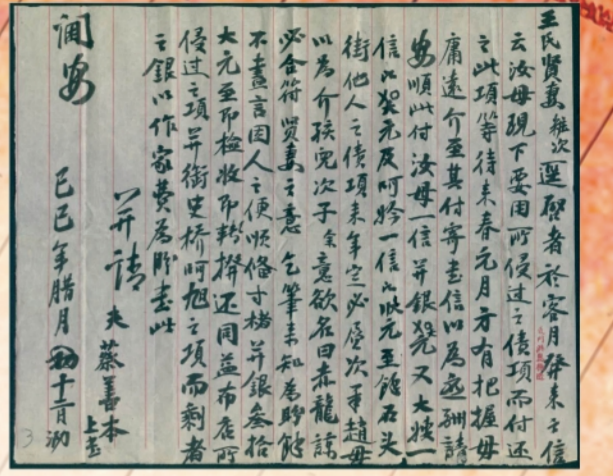 王氏賢妻粧次 逕啓者於客月發来之信
云汝母現下要用所侵过之債項而付还
之此項等待来春元月方有把握毋
庸遠介至其付寄書信以為遞酬請
安順此付汝母一信并銀元又大嫂一
信元及呵妗一信元至館石头
街他人之債項来年定必陸次平趙毋
以為介孩兒次子余意欲名曰赤龍諒
必合符賢妻之意 乞筆来知為盼餘
不盡言因人之便順修寸楮并銀叁拾
大元至即檢收即轉撥还同益布店所
侵过之項并街史桥呵旭之項而剩者
之銀以作家費為盼書此
并請
夫 蔡善本 上書
闺安 己巳年腊月 十二日泐
3